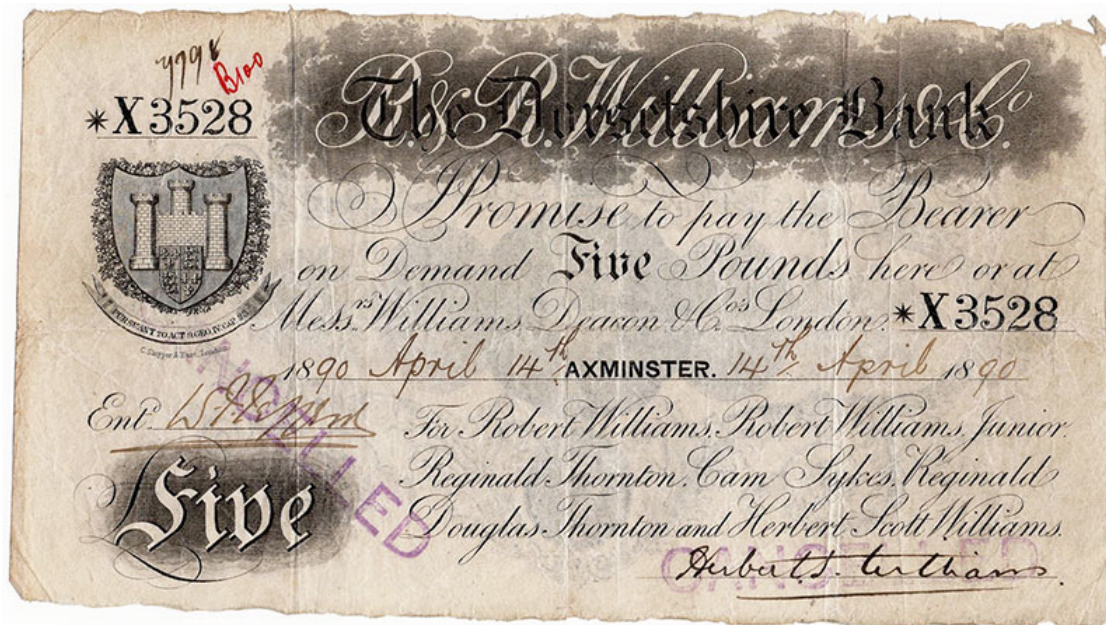 7798
B100
*X3528
The Dorsetshire Bank
R. & R. Williams & Co.
I Promise to pay the Bearer
on Demand Five Pounds here or at
Messrs Williams, Deacon & Co's London. *X3528
PURSUANT TO ACT 9 GEO. IV. CAP 23
1890 April 14th AXMINSTER. 14th April 1890
Entd
For Robert Williams, Robert Williams, Junior.
Reginald Thornton, Cam Sykes, Reginald
Five Douglas Thornton and Herbert Scott Williams.
CANCELLED
CANCELLED
Herbert S. Williams